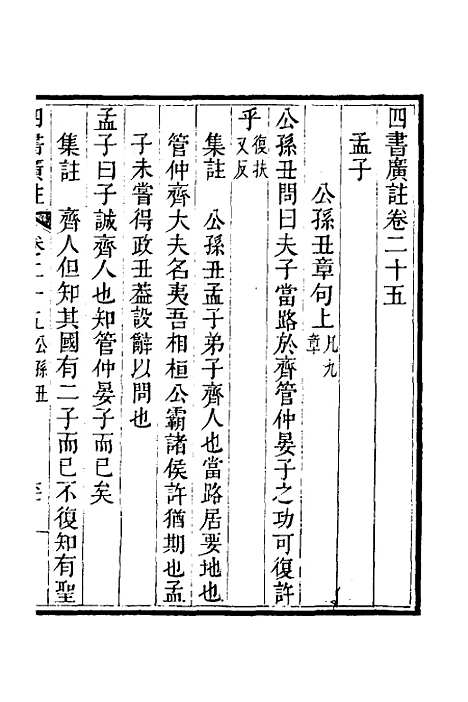 四書廣註卷二十五
孟子
公孫丑章句上凡九章
公孫丑問曰夫子當路於齊管仲晏子之功可復許
乎復扶又反
集註 公孫丑孟子弟子齊人也當路居要地也
管仲齊大夫名夷吾相桓公霸諸侯許猶期也孟
子未嘗得政丑葢設辭以問也
孟子曰子誠齊人也知管仲晏子而已矣
集註 齊人但知其國有二子而已不復知有聖
四書廣註 卷二十五公孫丑